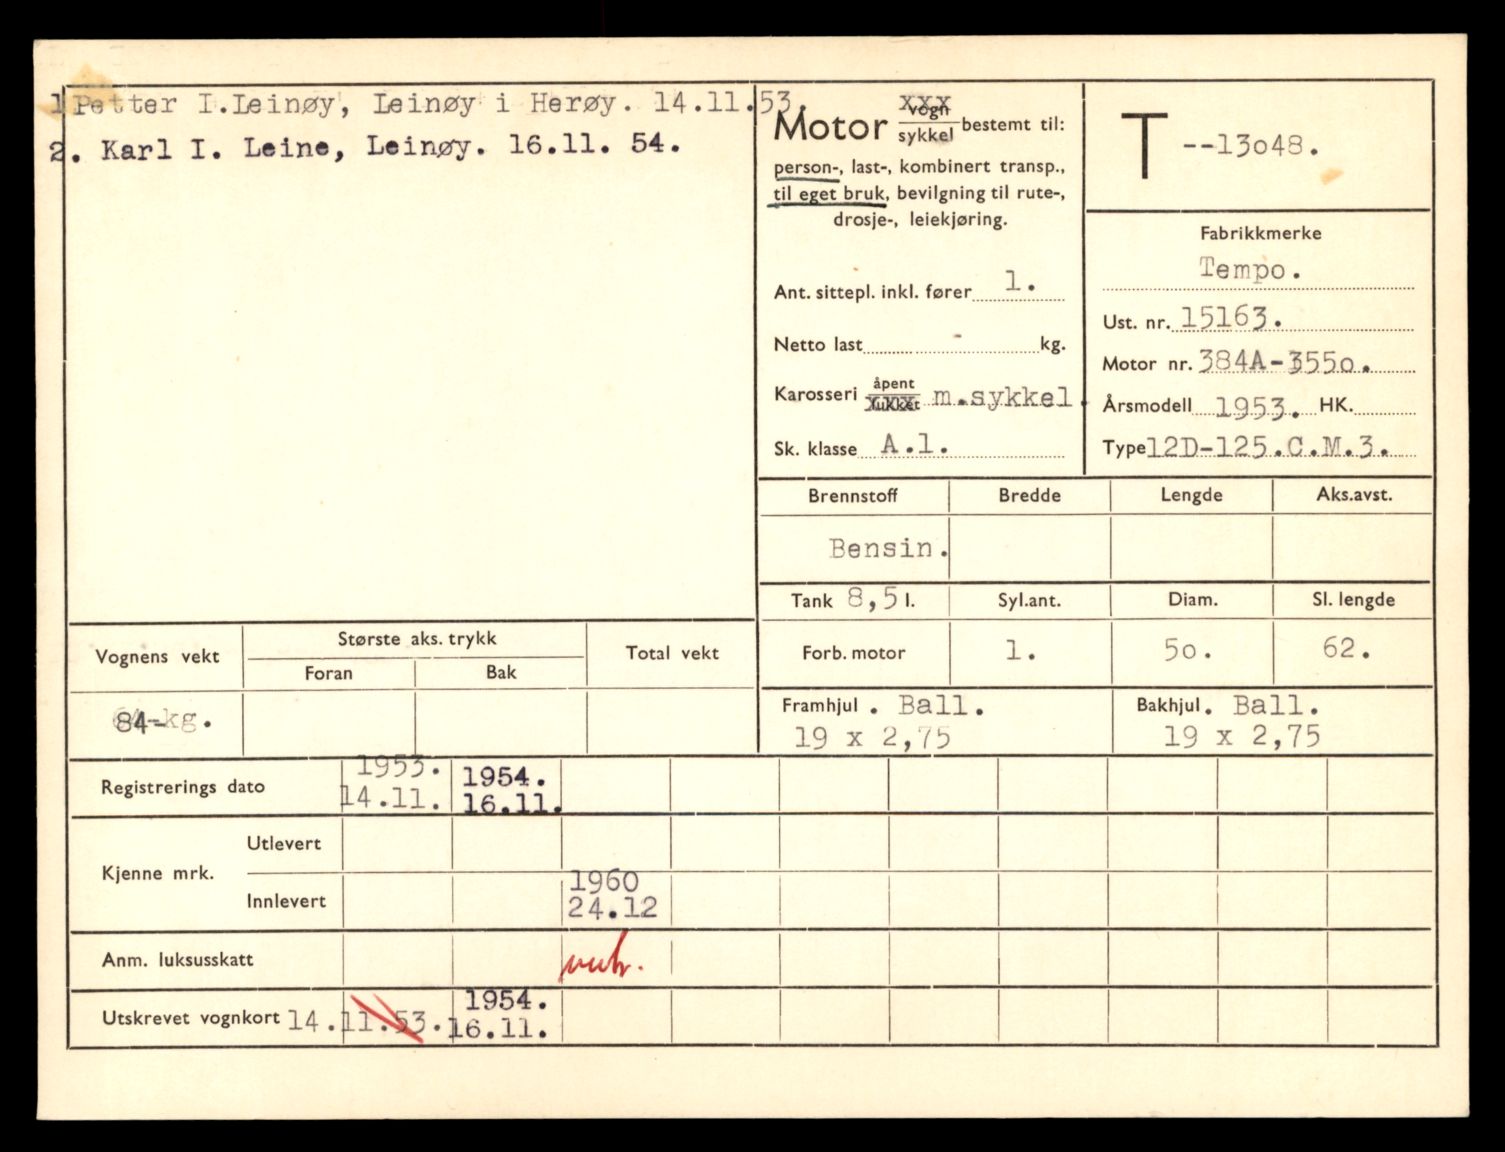 1 Petter I.Leinøy, Leinøy i Herøy. 14.11.53.
2. Karl I. Leine, Leinøy. 16.11. 54.
Motor vogn sykkel bestemt til:
person-, last-, kombinert transp.,
til eget bruk, bevilgning til rute-,
drosje-, leiekjøring.
Ant. sittepl. inkl. fører 1.
Netto last - kg.
Karosseri åpent lukket m.sykkel.
Sk. klasse A.1.
T --13o48.
Fabrikkmerke
Tempo.
Ust. nr. 15163.
Motor nr. 384A-355o.
Årsmodell 1953. HK.
Type 12D-125.C.M.3.
Brennstoff Bredde Lengde Aks.avst.
Bensin.
Tank 8,5 l. Syl.ant. Diam. Sl. lengde
Forb. motor 1. 5o. 62.
Framhjul . Ball. Bakhjul . Ball.
19 x 2,75 19 x 2,75
Vognens vekt Største aks. trykk Total vekt
Foran Bak
84-kg.
Registrerings dato 1953. 1954.
14.11. 16.11.
Kjenne mrk. Utlevert
Innlevert 1960
24.12
Anm. luksusskatt
Utskrevet vognkort 14.11.53. 1954.
16.11.